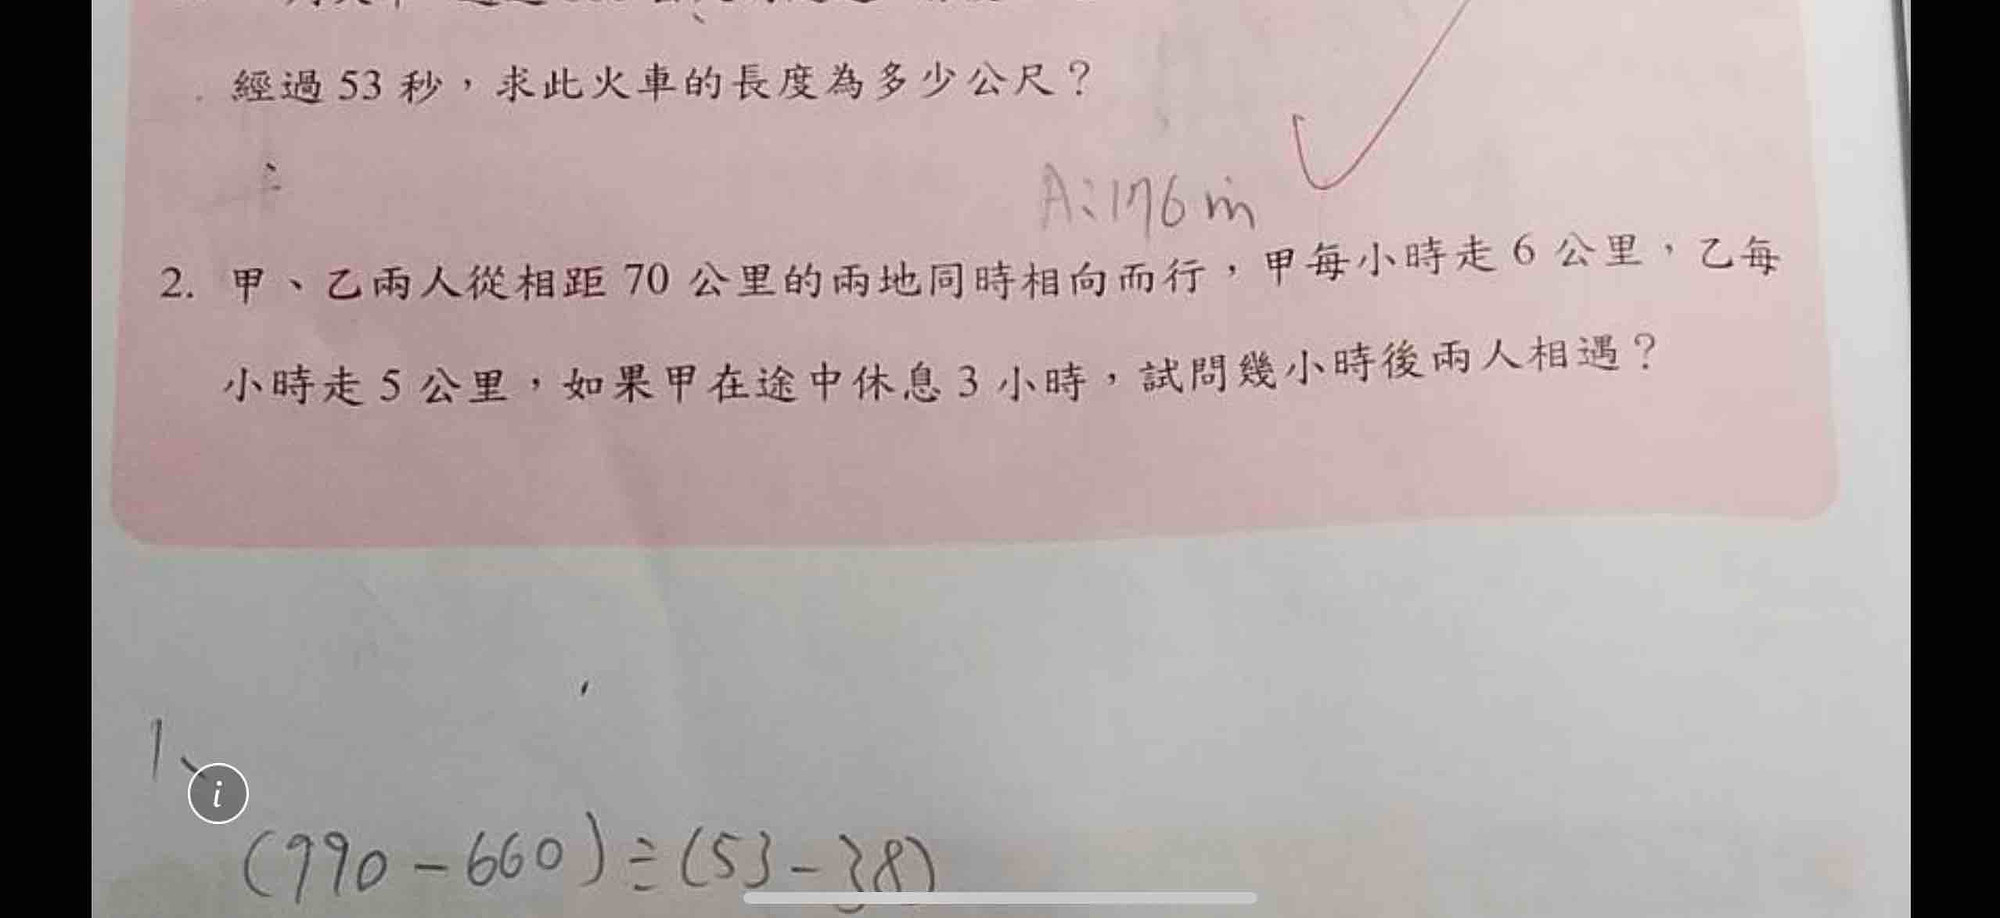 經過 53 秒,求此火車的長度為多少公尺?
A:176 m
2. 甲、乙兩人從相距 70 公里的兩地同時相向而行,甲每小時走 6 公里,乙每
小時走 5 公里,如果甲在途中休息 3 小時,試問幾小時後兩人相遇?
1、
i
(990-660)÷(53-38)